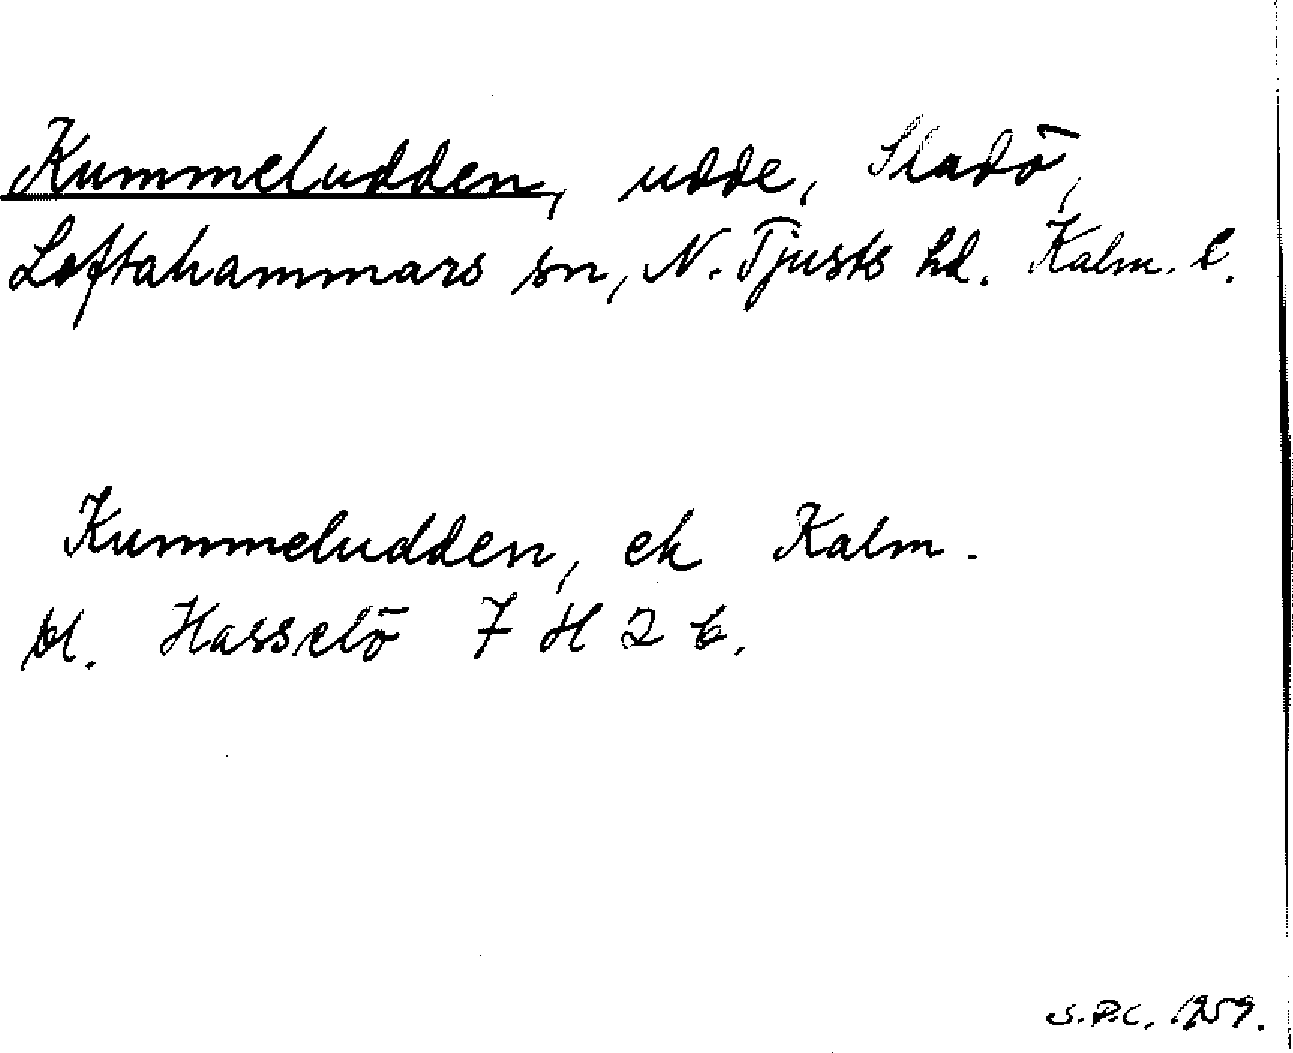 Kummeludden, udde, Sladö,
Loftahammars sn, N. Tjusts hd. Kalm. l.
Kummeludden, ek Kalm.
bl. Hasselö 7 H 2 b.
S.P.C. 1959.